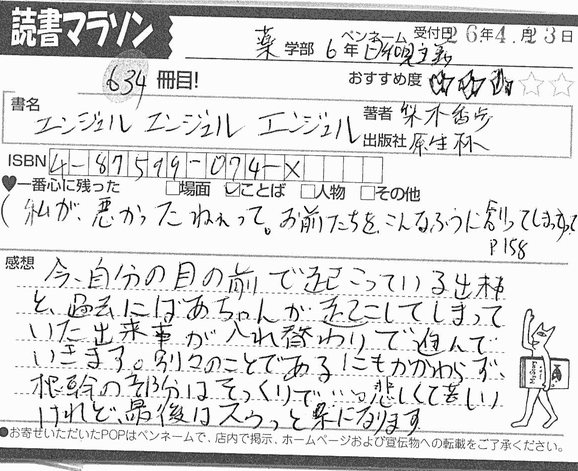 読書マラソン
ペンネーム 受付日 26年4月23日
薬 学部 6年 日和見主義
634 冊目!
おすすめ度 ☆☆
書名 エンジェル エンジェル エンジェル
著者 梨木香歩
出版社 原生林
ISBN 4-87599-074-X
♥一番心に残った □場面 ☑ことば □人物 □その他
(私が、悪かったねぇって。お前たちを、こんなふうに創ってしまって
P158
感想
今、自分の目の前で起こっている出来事
と、過去にばあちゃんが起こしてしまって
いた出来事が入れ替わりで進んで
いきます。別々のことであるにもかかわらず、
根幹の部分はそっくりで…。悲しくて苦しい
けれど、最後はスウっと楽になります
●お寄せいただいたPOPはペンネームで、店内で掲示、ホームページおよび宣伝物への転載をご了承ください。